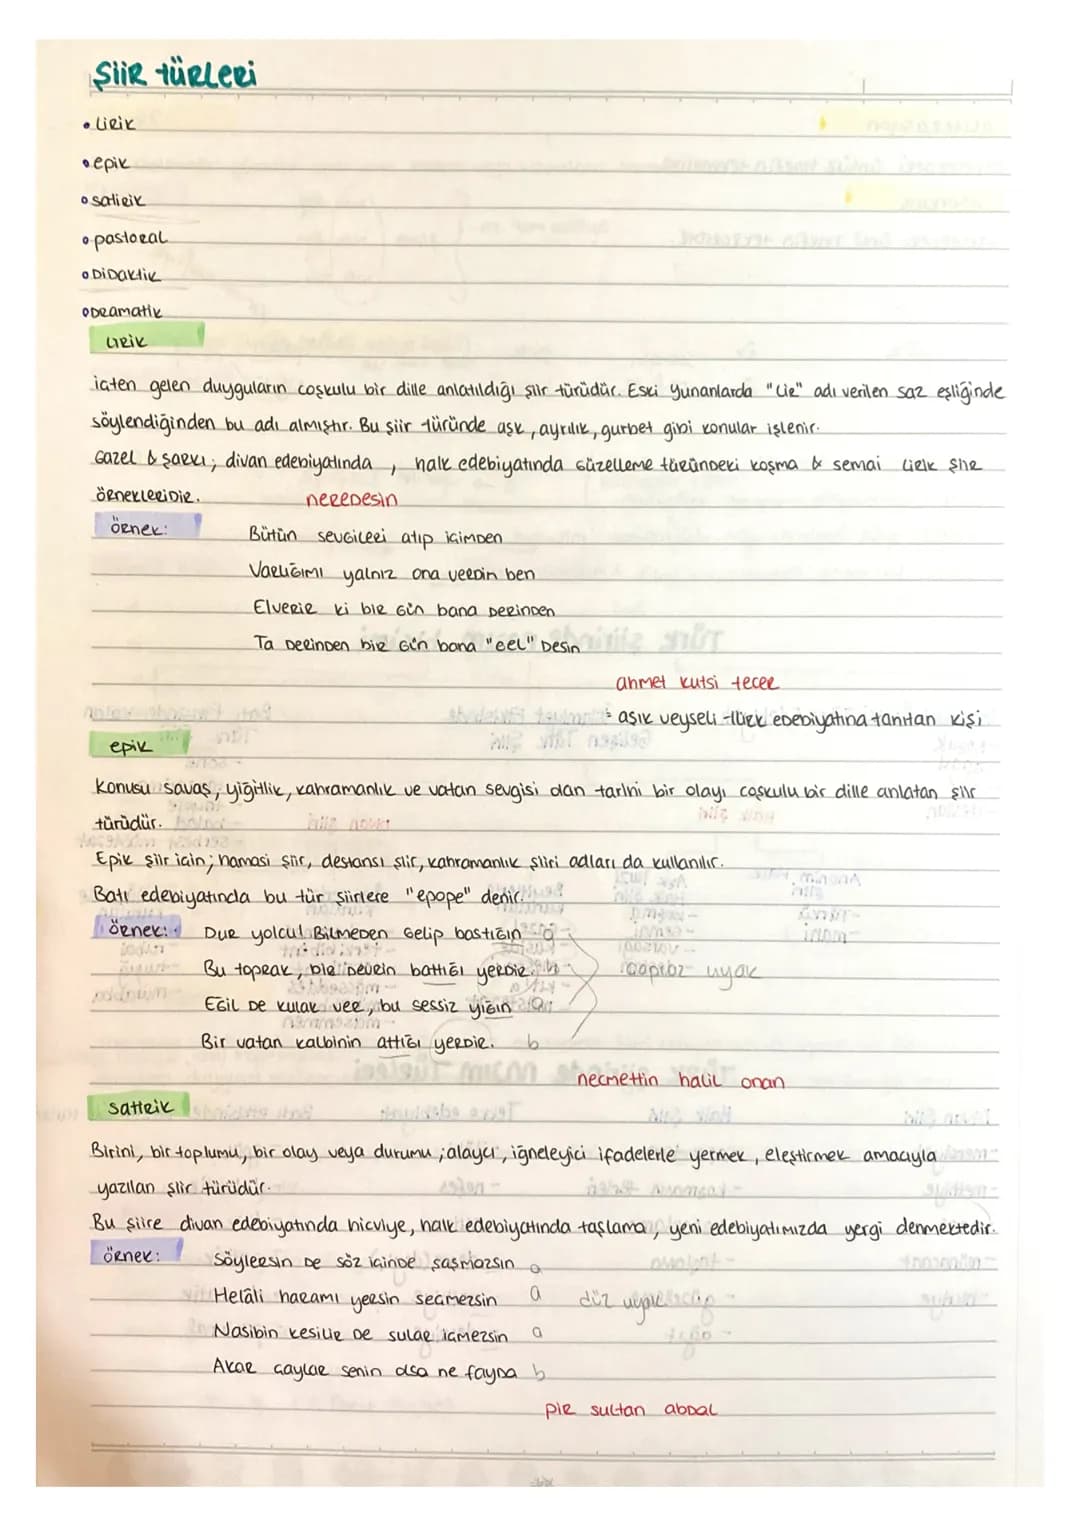 Şiir türleri
• Lirik
• epik
• satirik
• pastoral
• Didaktik
• Dramatik
Lirik
içten gelen duyguların coşkulu bir dille anlatıldığı şiir türüdür. Eski Yunanlarda "Lir" adı verilen saz eşliğinde
söylendiğinden bu adı almıştır. Bu şiir türünde aşk, ayrılık, gurbet gibi konular işlenir.
Gazel & şarkı; divan edebiyatında , halk edebiyatında güzelleme türündeki koşma & semai lirik şiir
örnekleridir.
neredesin
örnek:
Bütün sevgileri atıp içimden
Varlığımı yalnız ona verdin ben
Elverir ki bir gün bana derinden
Ta derinden bir gün bana "gel" Desin
ahmet kutsi tecer
: aşık veyseli Türk edebiyatına tanıtan kişi
epik
Konusu savaş, yiğitlik, kahramanlık ve vatan sevgisi olan tarihi bir olayı coşkulu bir dille anlatan şiir
türüdür.
Epik şiir için; hamasi şiir, destansı şiir, kahramanlık şiiri adları da kullanılır.
Batı edebiyatında bu tür şiirlere "epope" denir.
örnek:
Dur yolcu! Bilmeden gelip bastığın a
Bu toprak, bir devrin battığı yerdir. b
Eğil de kulak ver, bu sessiz yığın a
Bir vatan kalbinin attığı yerdir. b
çapraz uyak
necmettin halil onan
satirik
Birini, bir toplumu, bir olay veya durumu; alaycı, iğneleyici ifadelerle yermek, eleştirmek amacıyla
yazılan şiir türüdür.
Bu şiire divan edebiyatında hicviye, halk edebiyatında taşlama, yeni edebiyatımızda yergi denmektedir.
örnek:
Söylersin de söz içinde şaşmazsın a
Helâli haramı yersin seçmezsin a
düz uyak
Nasibin kesilir de sular içmezsin a
Akar çaylar senin olsa ne fayda b
pir sultan abdal